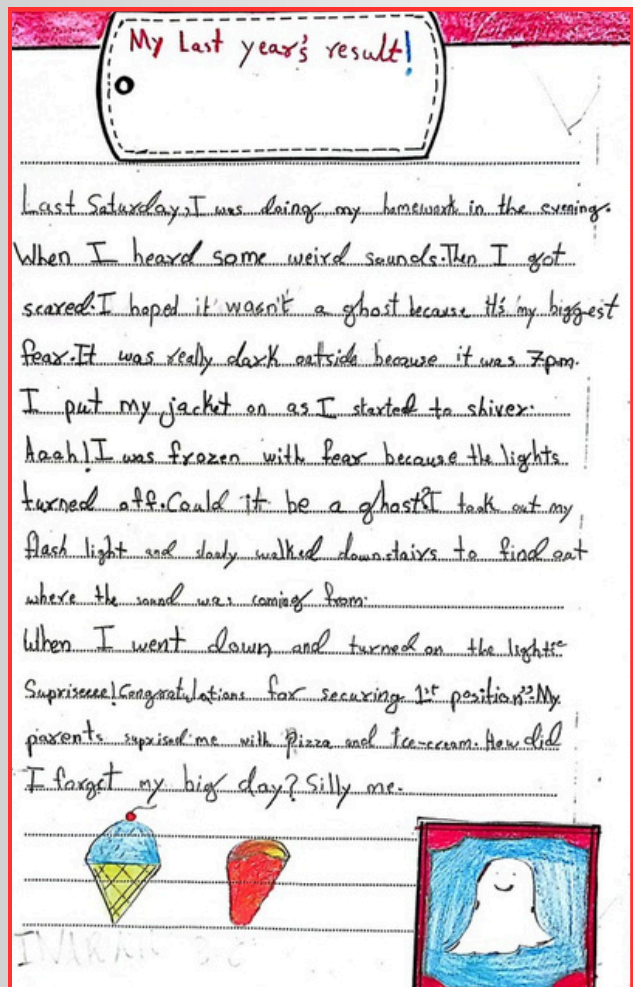 My Last year's result!
Last Saturday, I was doing my homework in the evening.
When I heard some weird sounds. Then I got
scared. I hoped it wasn't a ghost because it's my biggest
fear. It was really dark outside because it was 7pm.
I put my jacket on as I started to shiver.
Aaah! I was frozen with fear because the lights
turned off. Could it be a ghost? I took out my
flash light and slowly walked downstairs to find out
where the sound was coming from.
When I went down and turned on the lights "
Supriseeee! Congratulations for securing 1st position". My
parents suprised me with Pizza and Ice-cream. How did
I forget my big day? Silly me.